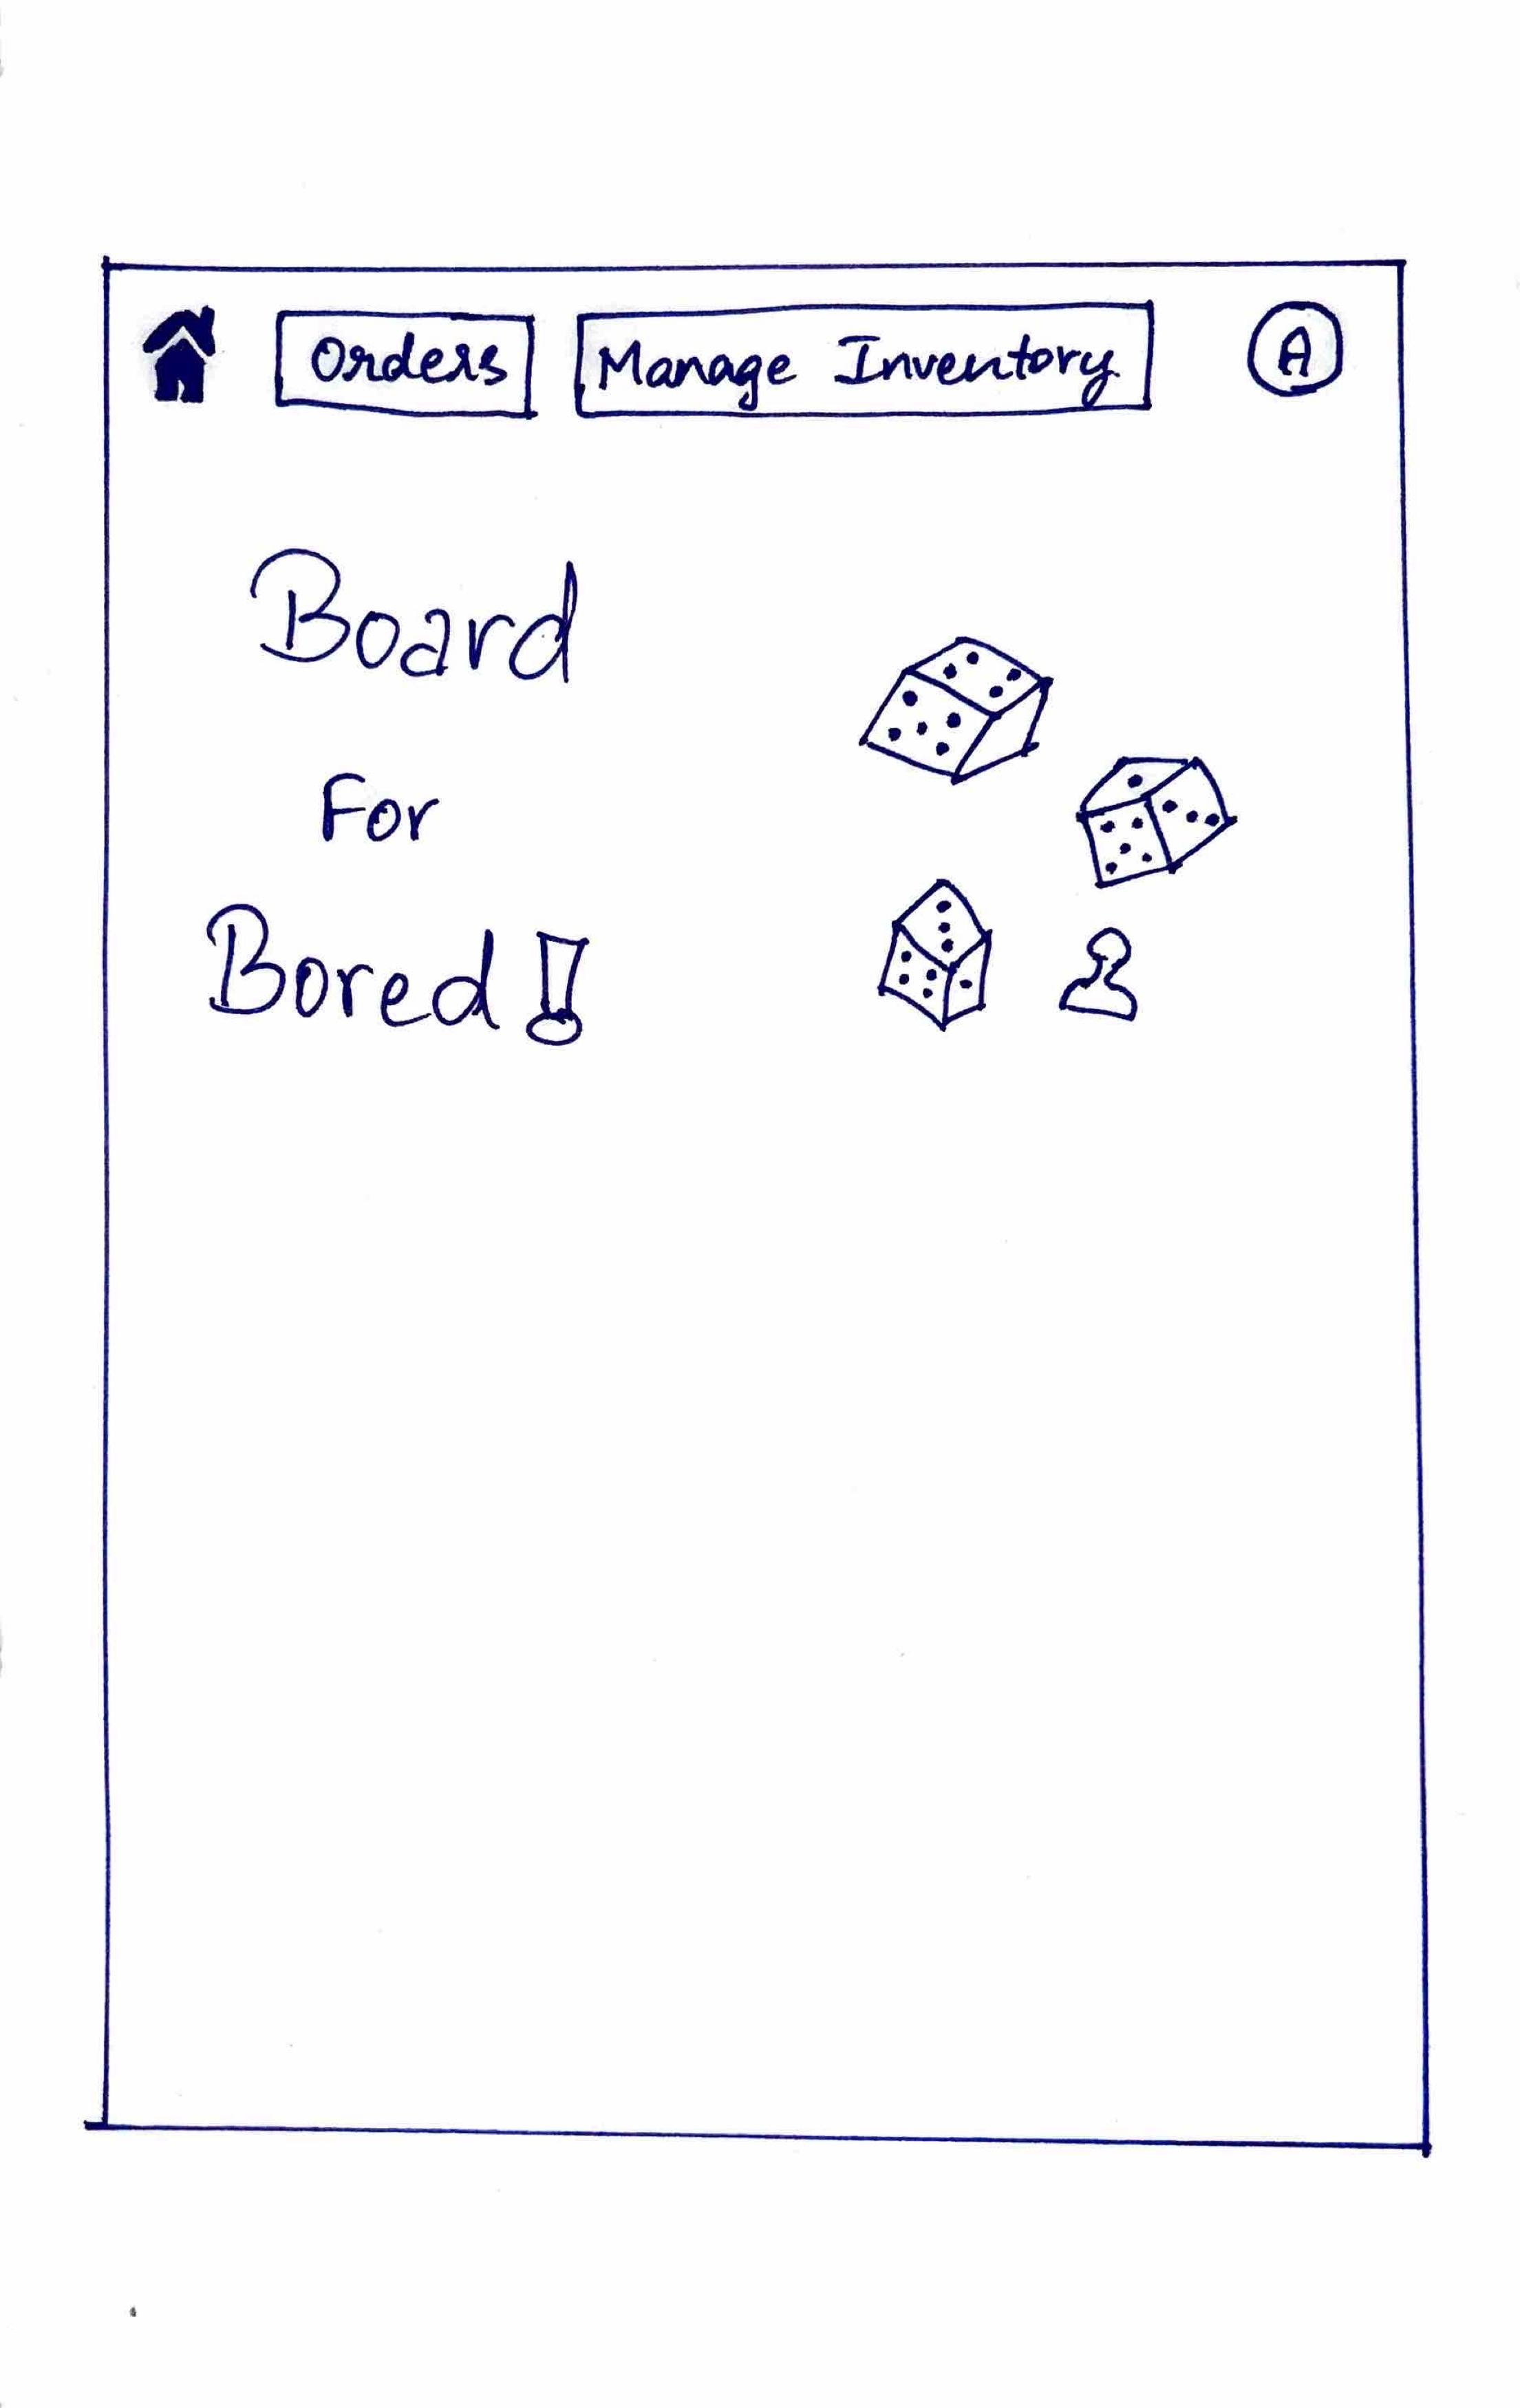 Orders Manage Inventory A
Board
For
Bored!